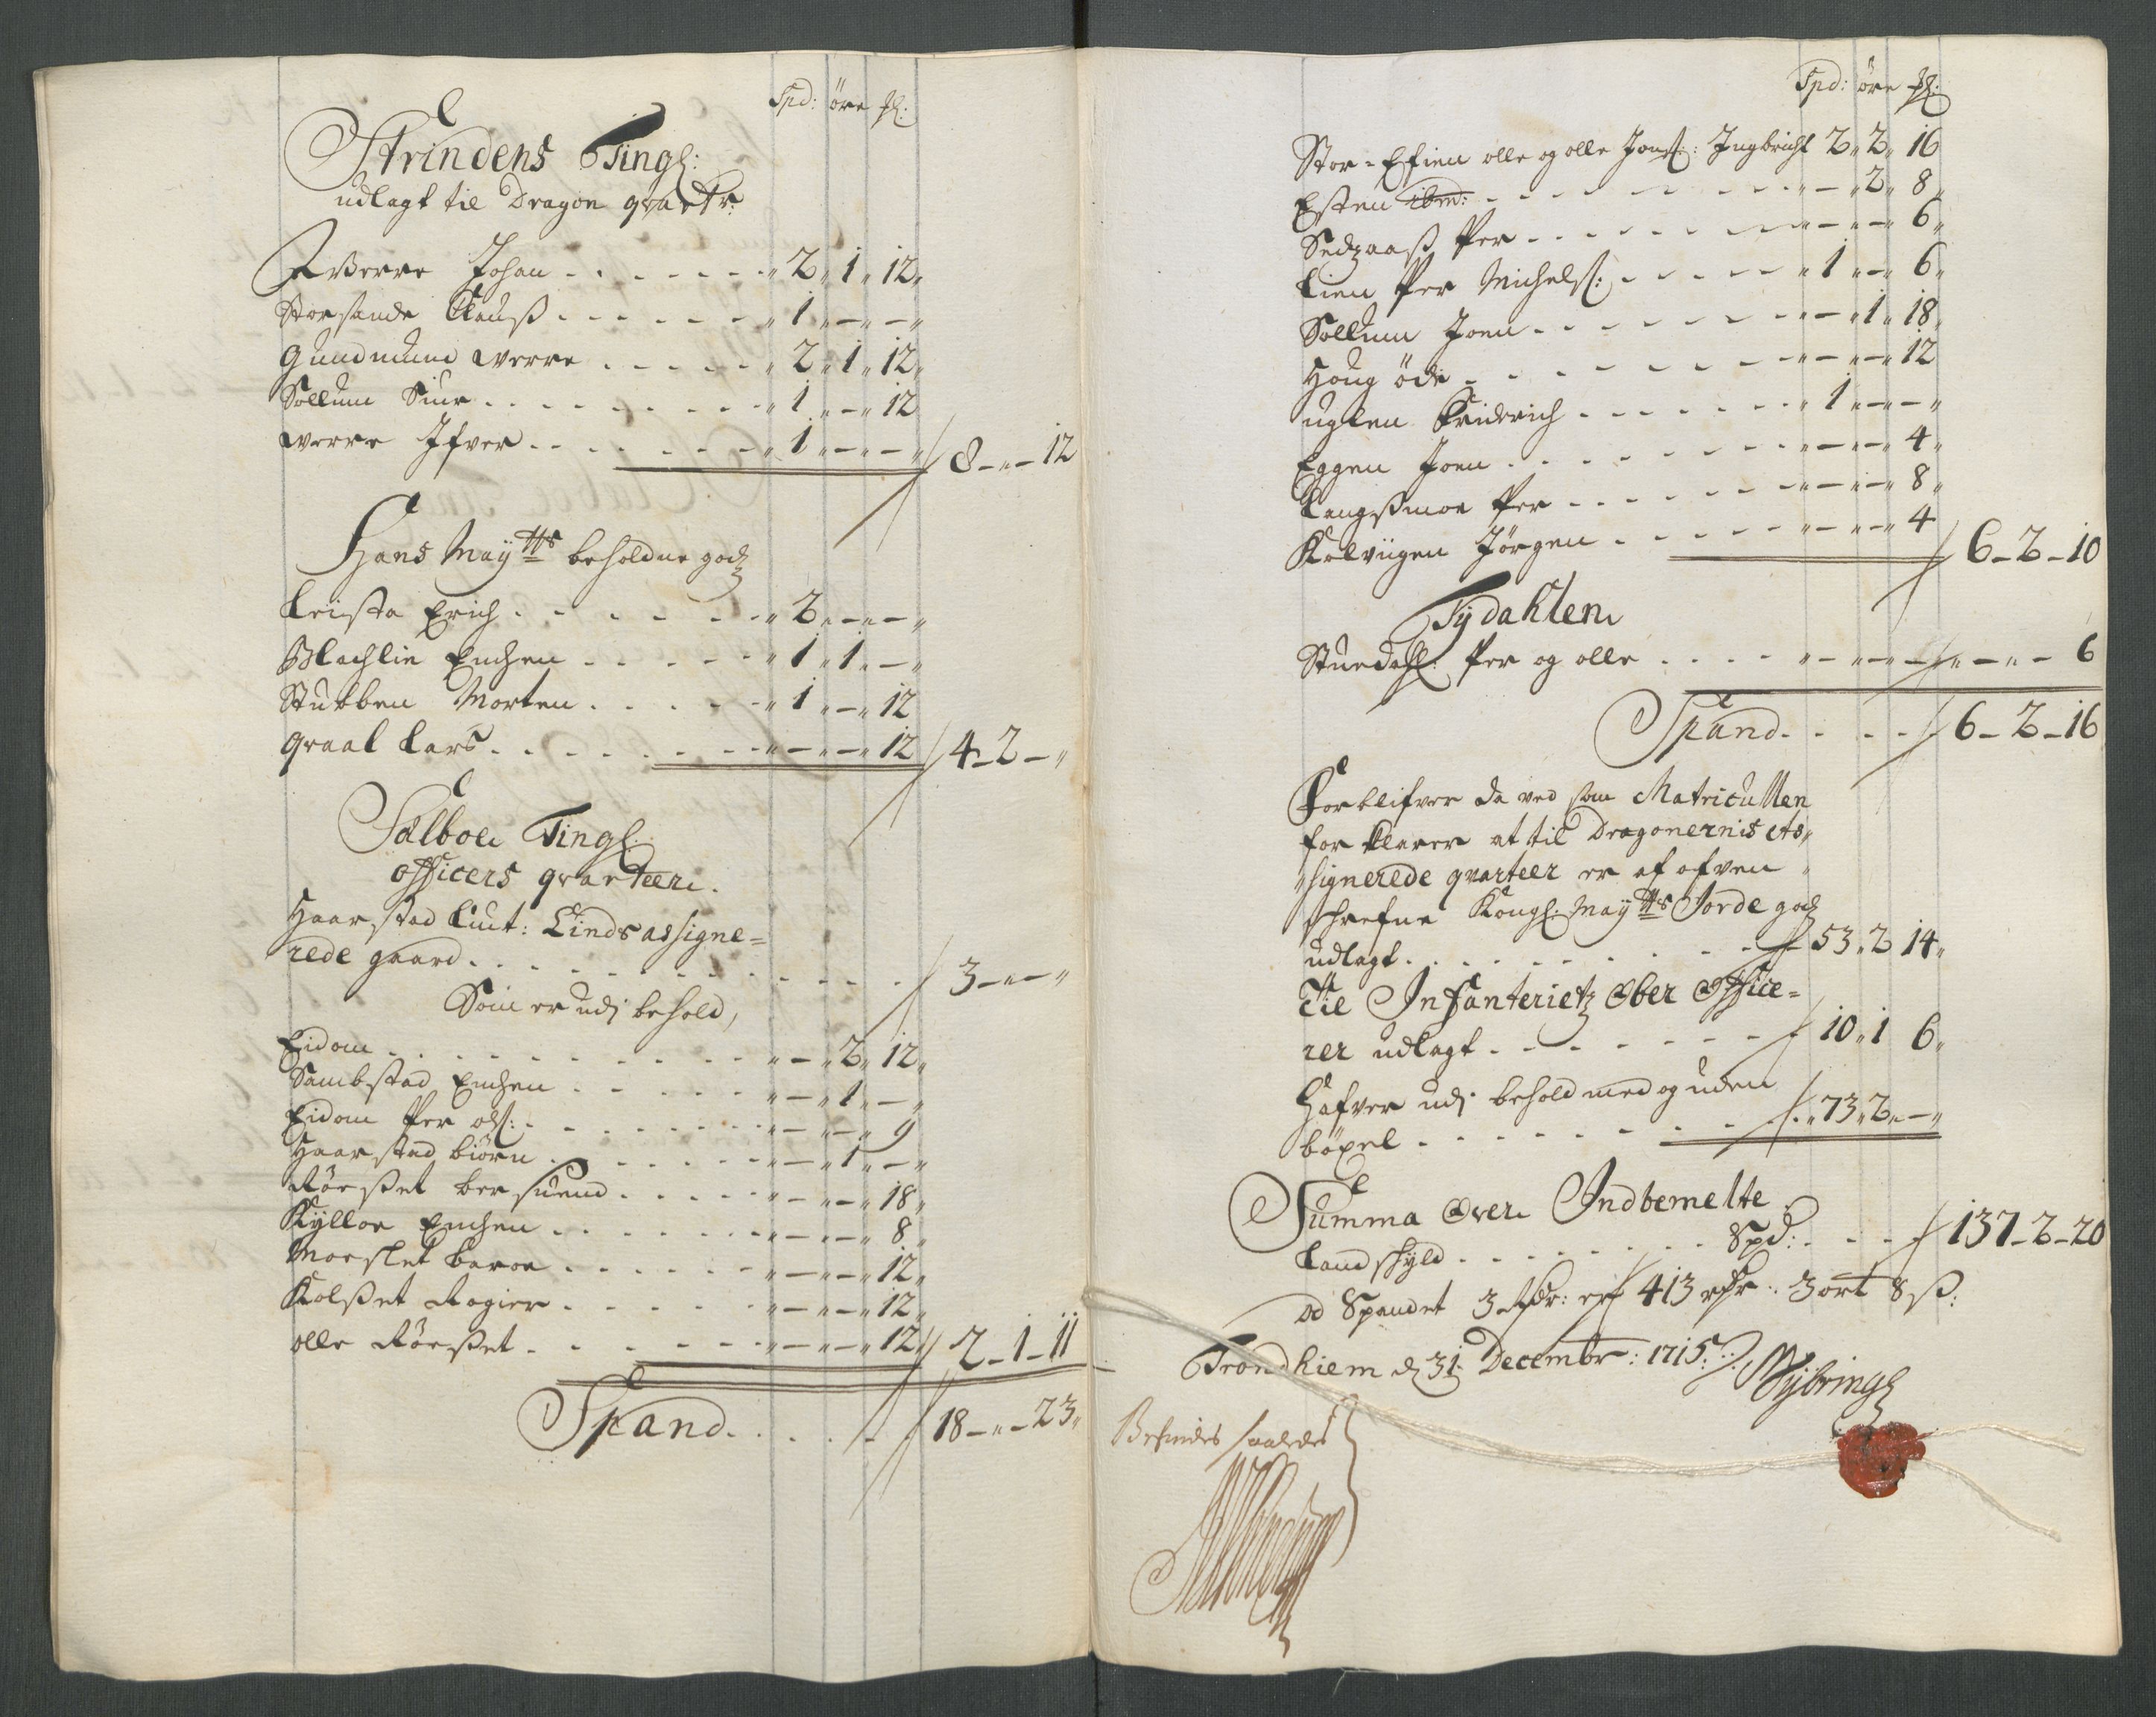 Spd: öre ȷl:
Strindens Tingl:
udlagt til Dragon qvartr:
Werre Johan . . . . . . . 2 " 1 " 12 "
Storsande Clauß . . . . . . " 1 " — " — "
Gundmund Werre . . . . . " 2 " 1 " 12 "
Sollum Siur . . . . . . . . " 1 " — " 12
Werre Ifver . . . . . . . " 1 " — " — " 8 - " - 12
Hans Mayᵗᵗˢ beholdne godz
Leista Erich . . . . . . " 2 " — " — "
Machlie Enchen . . . . . " 1 " 1 " — "
Stubben Morten . . . . . " 1 " — " 12
Graal Lars . . . . . . . " — " — " 12 4 - 2 - "
Sælboe Tingl:
officers qvarteer.
Haarstad Leut: Linds assigne=
rede gaard . . . . . . . . . 3 - " - "
Som er udj behold,
Eidom . . . . . . . . . " — " 2 " 12 "
Sambstad Enchen . . . . . " — " 1 " — "
Eidom Per Ols: . . . . . . " — " — " 9
Haarstad biörn . . . . . . " — " 1 " — "
Röeßet Ber suend . . . . . " — " — " 18 "
Kylloe Enchen . . . . . . . " — " — " 8 "
Moeslet Baroe . . . . . . " — " — " 12 "
Kolßet Rogier . . . . . . " — " — " 12 "
Olle Röeßet . . . . . . . " — " — " 12 " 2 - 1 - 11
Spand . . . . . . 18 - " - 23 "
Spd: öre ȷl:
Stor-Efien olle og olle Jons: Ingbricht 2 " 2 " 16
Esten ibm: . . . . . . . . . " — " 2 " 8 "
Sedzaaß Per . . . . . . . . . " — " — " 6 "
Lien Per Michels: . . . . . . " 1 " — " 6 "
Sollum Joen . . . . . . . . " — " 1 " 18 "
Houg öde . . . . . . . . " — " — " 12
Uglen Friderich . . . . . . . " 1 " — " — "
Eggen Joen . . . . . . . . " — " — " 4 "
Langßmoe Per . . . . . . . " — " — " 8 "
Kolviigen Jörgen . . . . . " — " — " 4 6 - 2 - 10
Tydahlen
Stuedahl: Per og olle . . . . " — " — " — " — " — 6
Spand . . . . . 6 - 2 - 16
Forblifver da ved som Matricullen
forklarer at til Dragonernis As,
signerede qvarteer er af ofven
schrefne Kongl: Mayᵗᵗˢ Jorde godz
udlagt . . . . . . . . . 53 " 2 14 "
Til Infanterietz Ober Office=
rer udlagt . . . . . . . 10 " 1 6 "
Hafver udj behold med og uden
böxel . . . . . . . . . . " 73 " 2 " — "
Summa Over Indbemelte
Landskyld . . . . . . . . Spd: . . . 137 - 2 - 20
Od Spandet 3 Rdr: er 413 rdr . 3 ort 8 ß:
Trondhiem d 31 Decembr: 1715.
Befindes saaledes